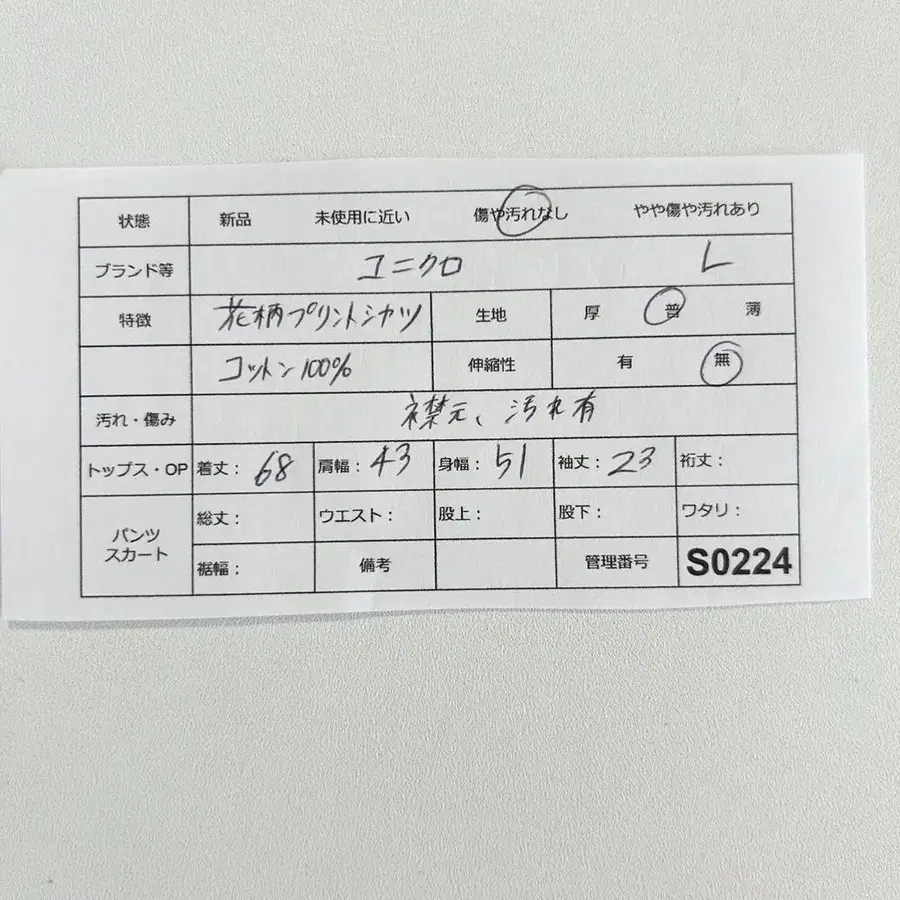 状態 新品 未使用に近い 傷や汚れなし やや傷や汚れあり
ブランド等 ユニクロ L
特徴 花柄プリントシャツ 生地 厚 普 薄
コットン100% 伸縮性 有 無
汚れ・傷み 襟元、汚れ有
トップス・OP 着丈: 68 肩幅: 43 身幅: 51 袖丈: 23 裄丈:
パンツ スカート 総丈: ウエスト: 股上: 股下: ワタリ:
裾幅: 備考 管理番号 S0224